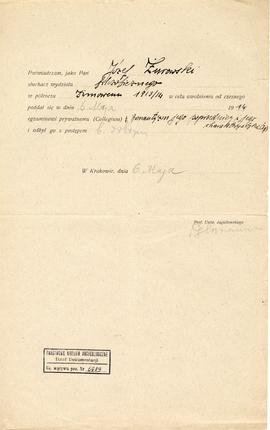 Poświadczam, jako Pan Józef Żurowski
słuchacz wydziału filozoficznego
w półroczu zimowem 1913/14 w celu uwolnienia od czesnego
poddał się w dniu 6 Maja 1914
egzaminowi prywatnemu (Collegium) z
i odbył go z postępem b. dobrym
W Krakowie, dnia 6 Maja
Prof. Uniw. Jagiellońskiego
PAŃSTWOWE MUZEUM ARCHEOLOGICZNE
Dział Dokumentacji
Ks. wpływu poz. Nr